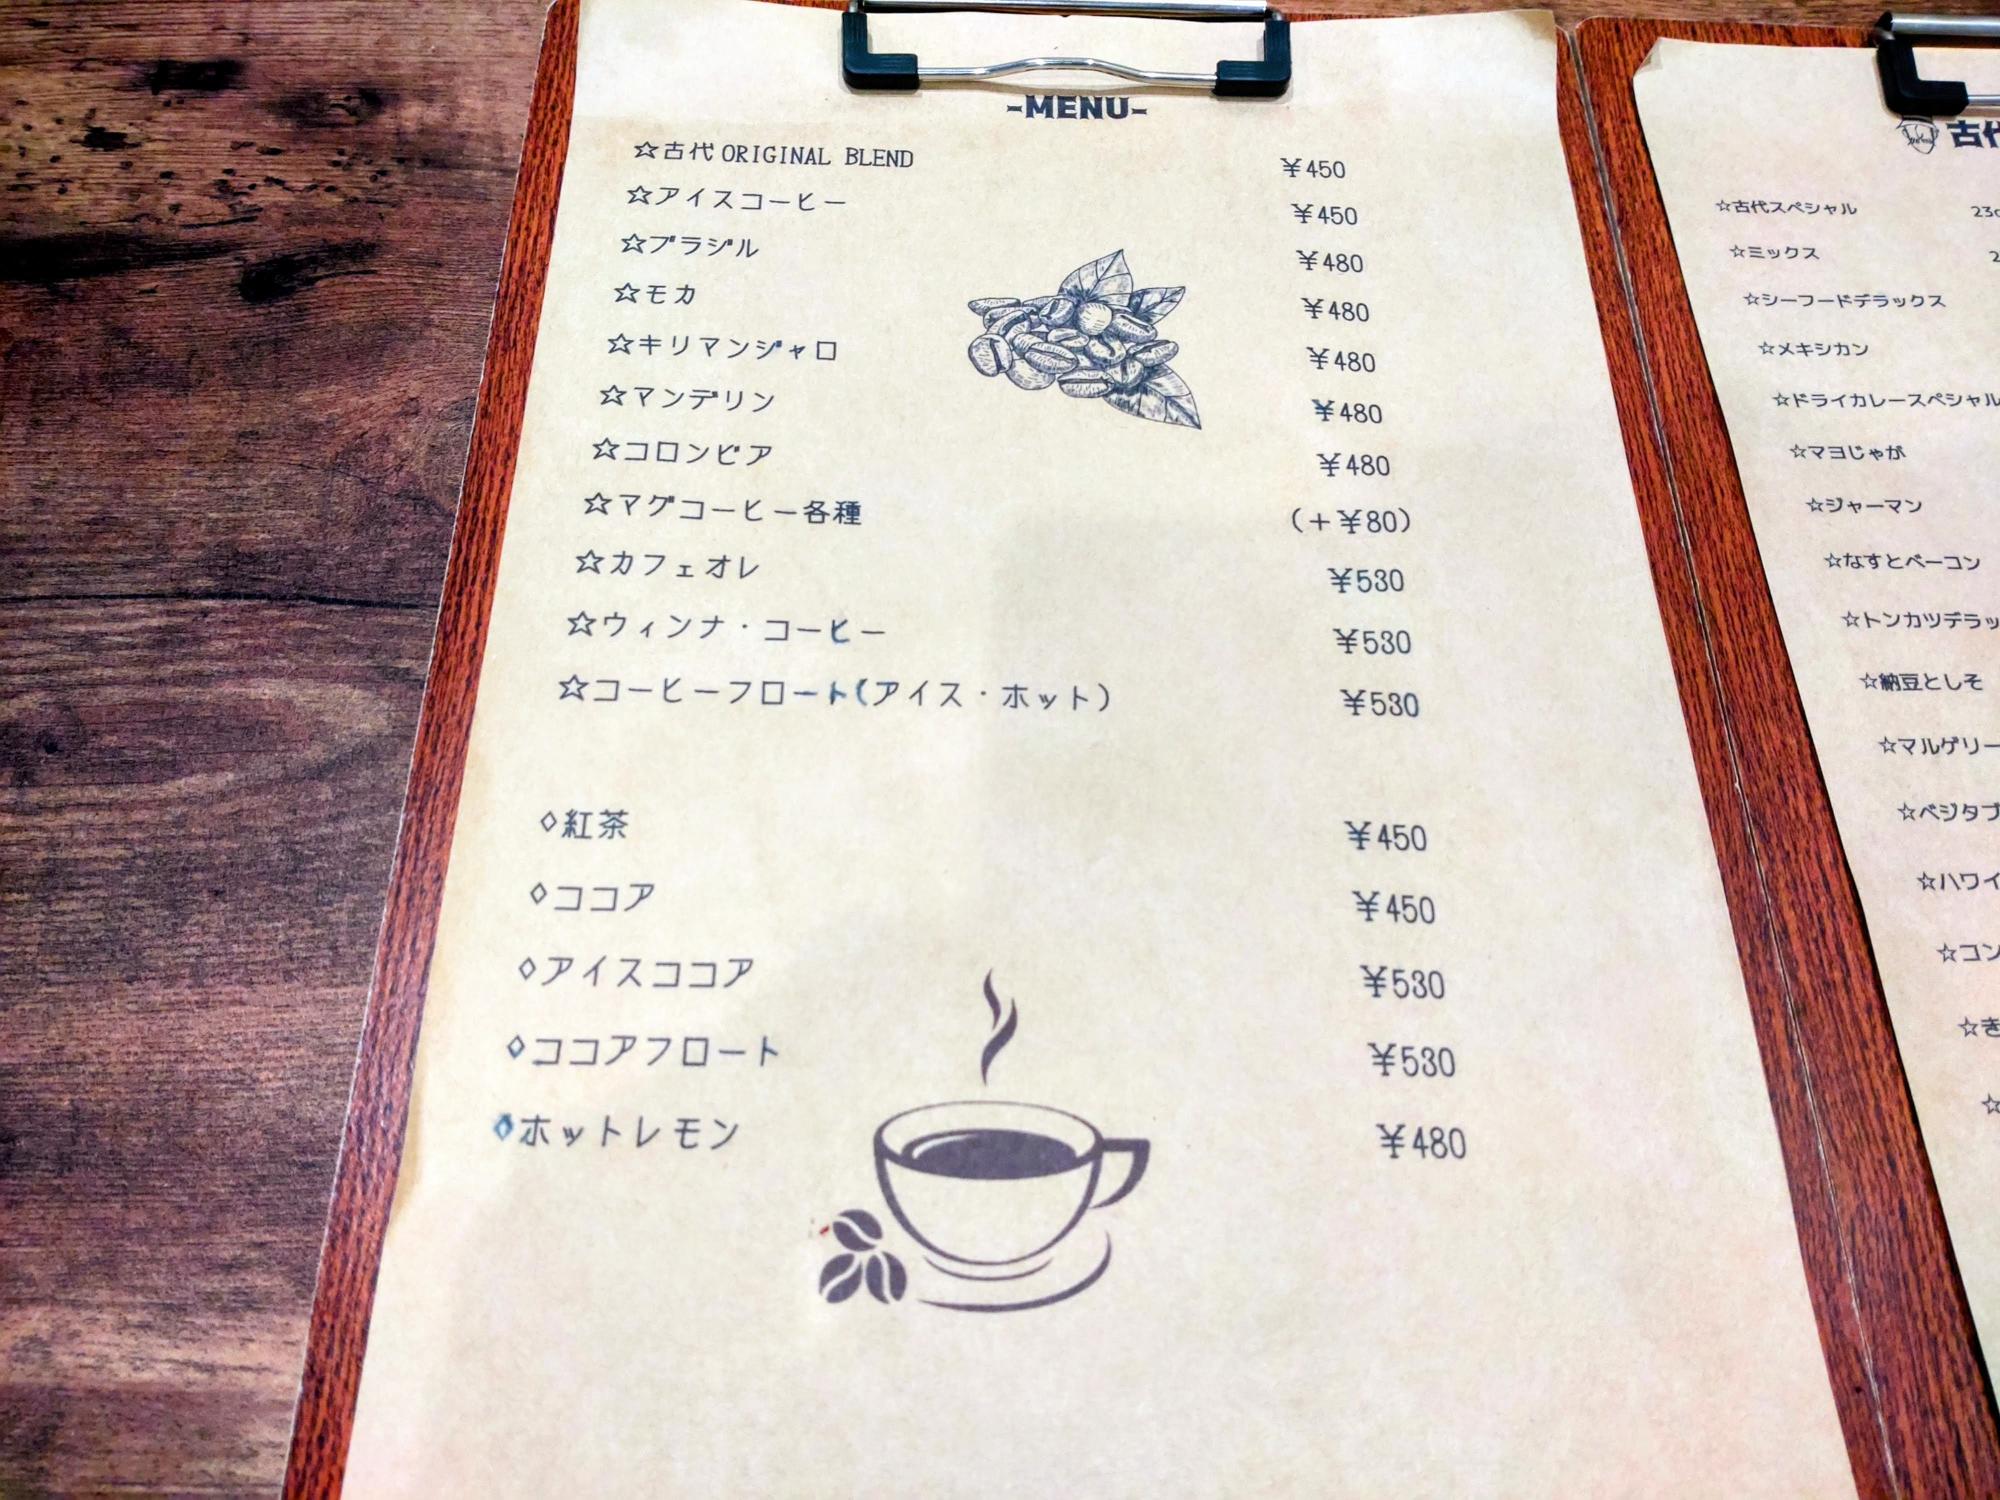 -MENU-
☆古代 ORIGINAL BLEND ¥450
☆アイスコーヒー ¥450
☆ブラジル ¥480
☆モカ ¥480
☆キリマンジャロ ¥480
☆マンデリン ¥480
☆コロンビア ¥480
☆マグコーヒー各種 (+¥80)
☆カフェオレ ¥530
☆ウィンナ・コーヒー ¥530
☆コーヒーフロート(アイス・ホット) ¥530
◇紅茶 ¥450
◇ココア ¥450
◇アイスココア ¥530
◇ココアフロート ¥530
◇ホットレモン ¥480
古代
☆古代スペシャル 23c
☆ミックス 2
☆シーフードデラックス
☆メキシカン
☆ドライカレースペシャル
☆マヨじゃが
☆ジャーマン
☆なすとベーコン
☆トンカツデラッ
☆納豆としそ
☆マルゲリー
☆ベジタブ
☆ハワイ
☆コン
☆き
☆